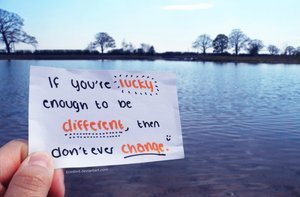 If you're lucky
enough to be
different, then
don't ever change.